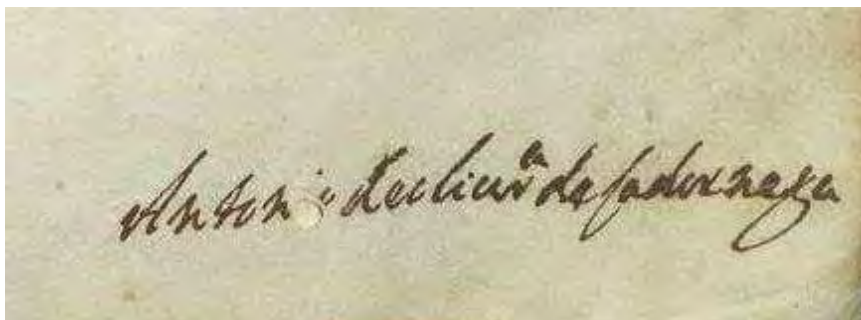 Antonio deoliurª de Cadornega